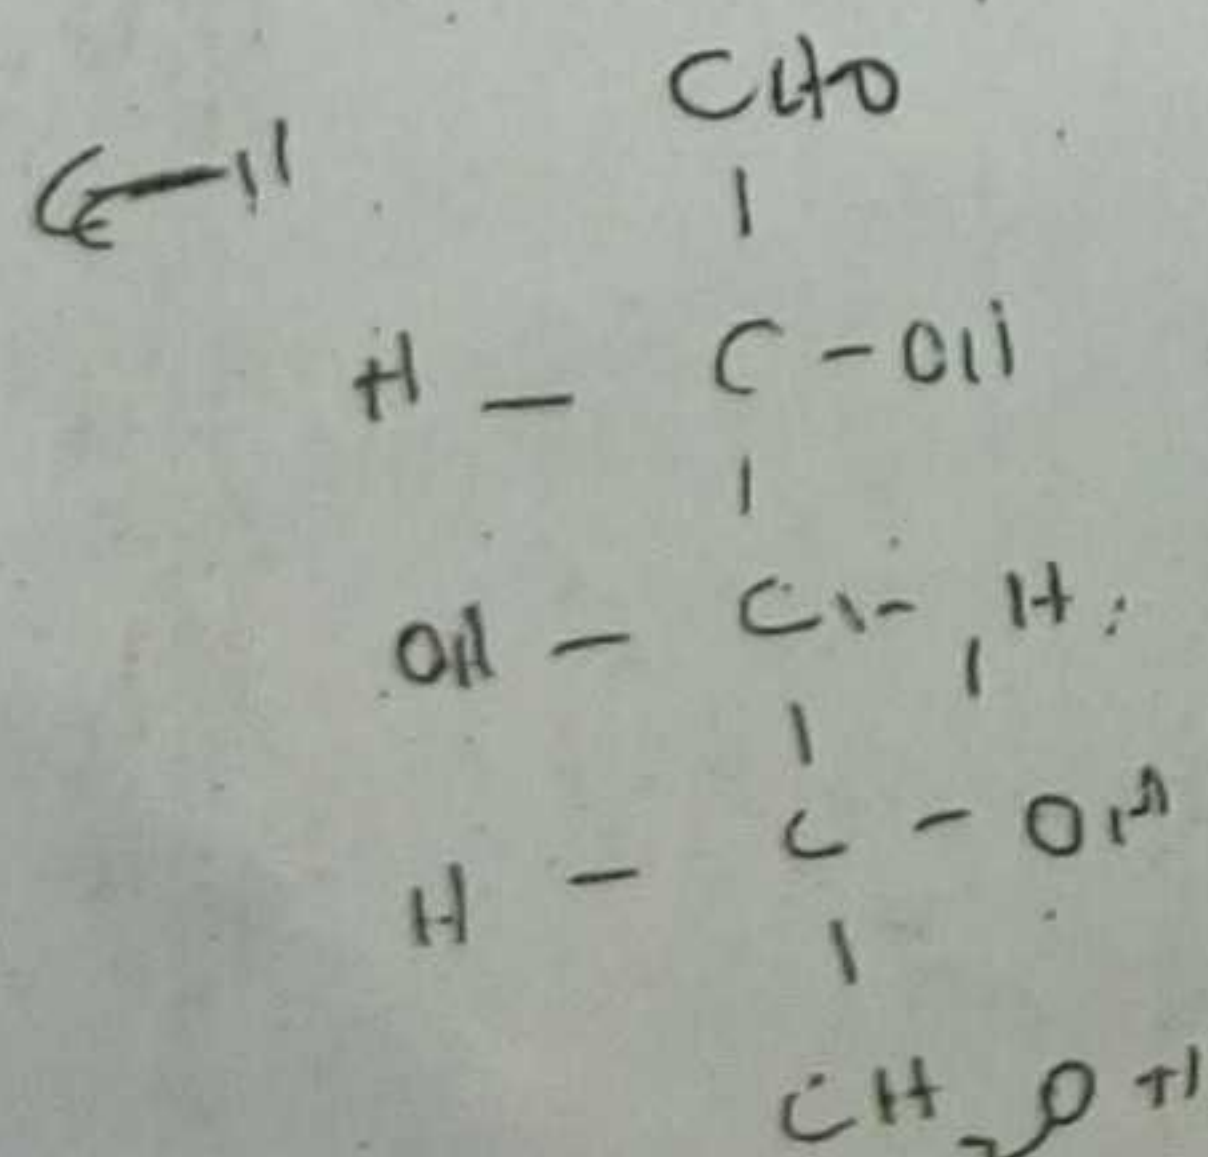 CHO
|
H — C - OH
|
OH — C - H
|
H — C - OH
|
CH2OH